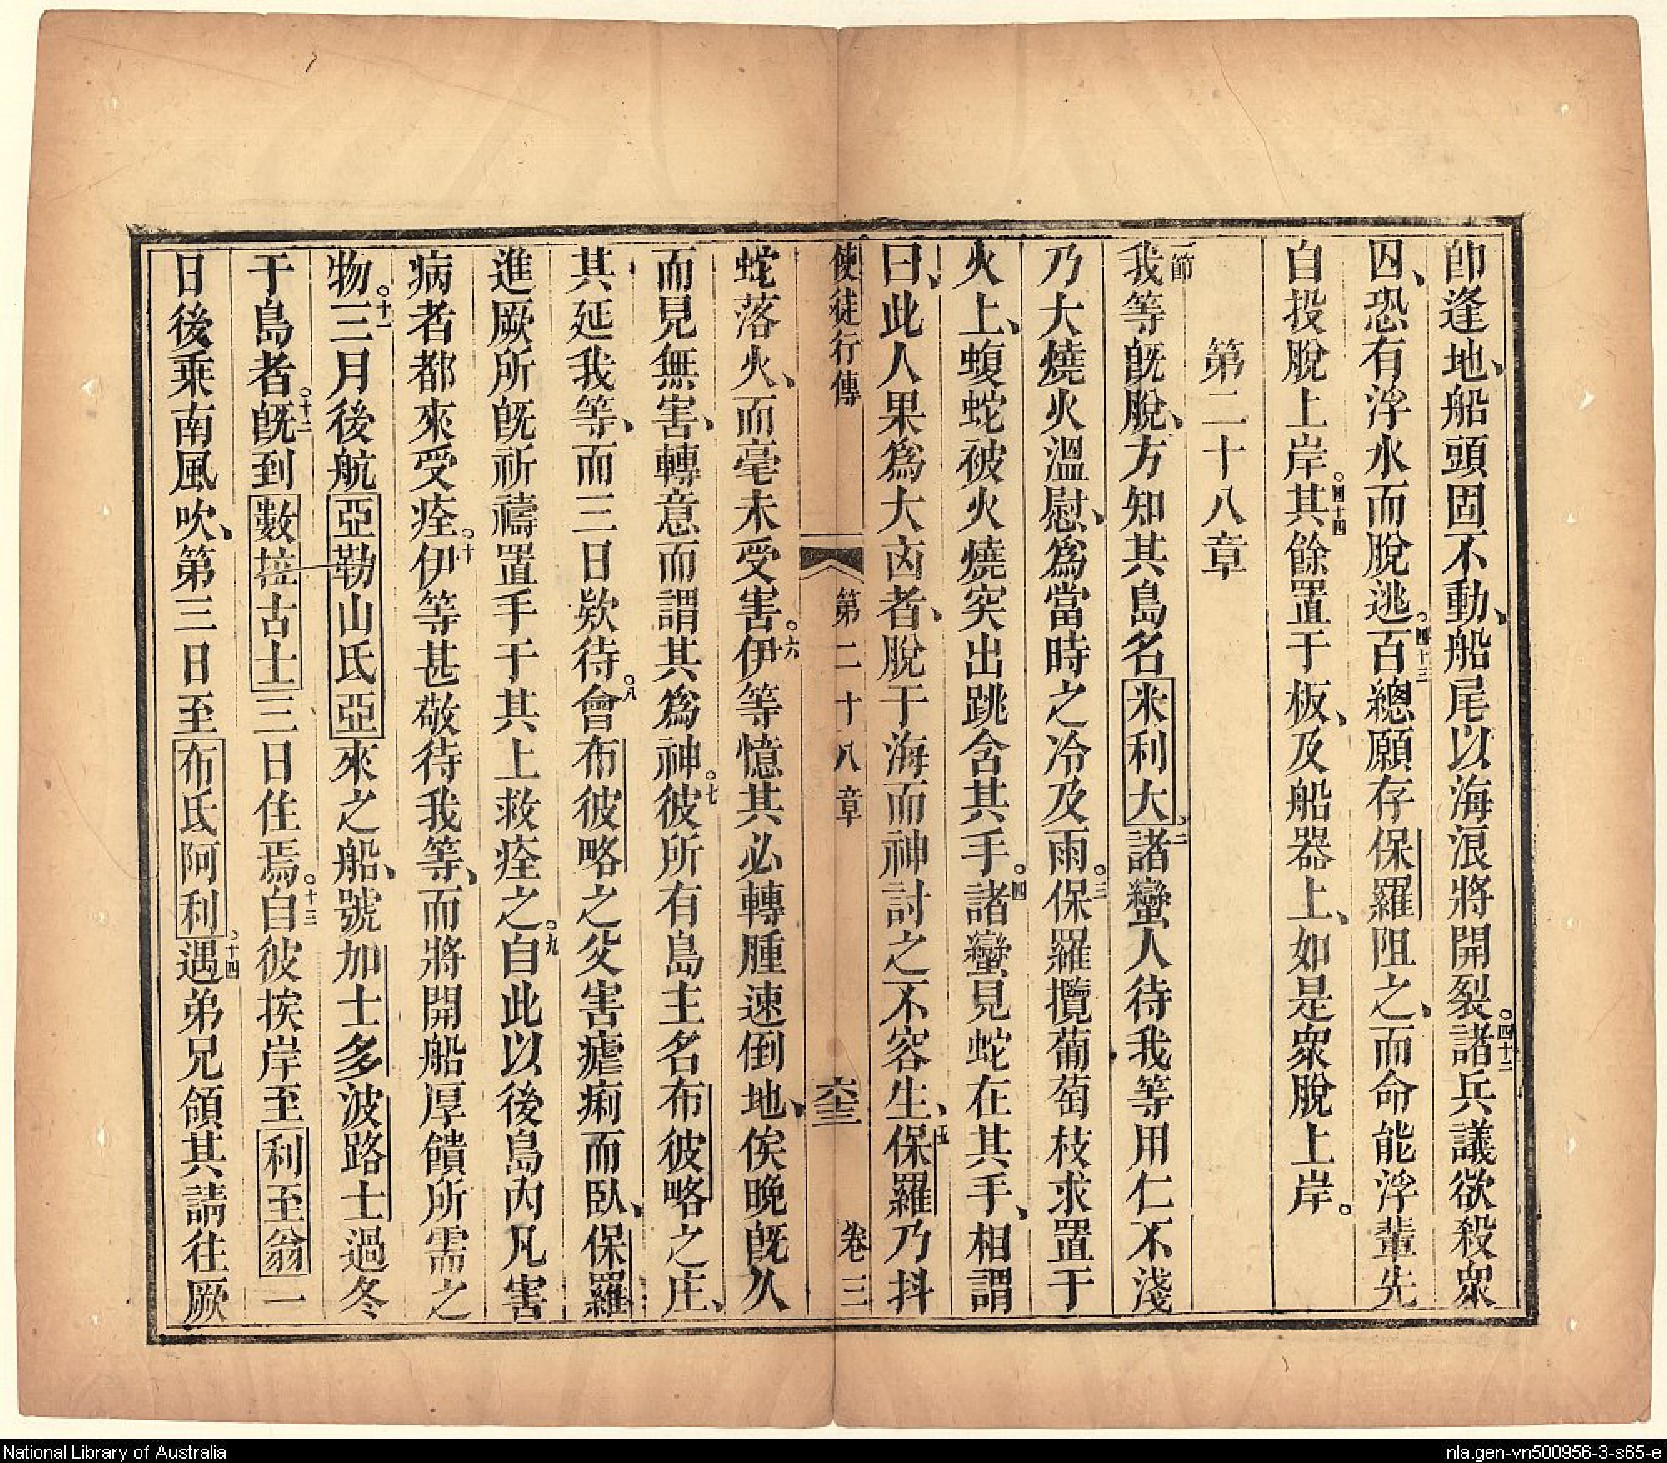 卽逢地、船頭固不動、船尾以海浪將開裂。四十二諸兵議欲殺衆
囚、恐有浮水而脫逃。四十三百總願存保羅阻之、而命能浮輩先
自投脫上岸。四十四其餘置于板、及船器上、如是衆脫上岸。
第二十八章
一節我等旣脫、方知其島名米利大、二諸蠻人待我等用仁不淺
乃大燒火溫慰、爲當時之冷及雨。三保羅攬葡萄枝求置于
火上、蝮蛇被火燒突出跳含其手。四諸蠻見蛇在其手、相謂
曰、此人果爲大凶者、脫于海而神討之不容生、五保羅乃抖
使徒行傳 第二十八章 六十三 卷三
蛇落火、而毫未受害。六伊等憶其必轉腫速倒地、俟晚旣久
而見無害、轉意而謂其爲神。七彼所有島主名布彼略之庄、
其延我等、而三日欵待。八會布彼略之父害瘧痢而臥、保羅
進厥所旣祈禱置手于其上救痊之。九自此以後島內凡害
病者都來受痊。十伊等甚敬待我等、而將開船厚饋所需之
物。十一三月後航亞勒山氏亞來之船、號加士多波路士過冬
于島者。十二旣到數拉古士三日住焉。十三自彼挨岸至利至翁一
日後乘南風吹、第三日至布氏阿利、十四遇弟兄領其請往厥
National Library of Australia
nla.gen-vn500956-3-s65-e